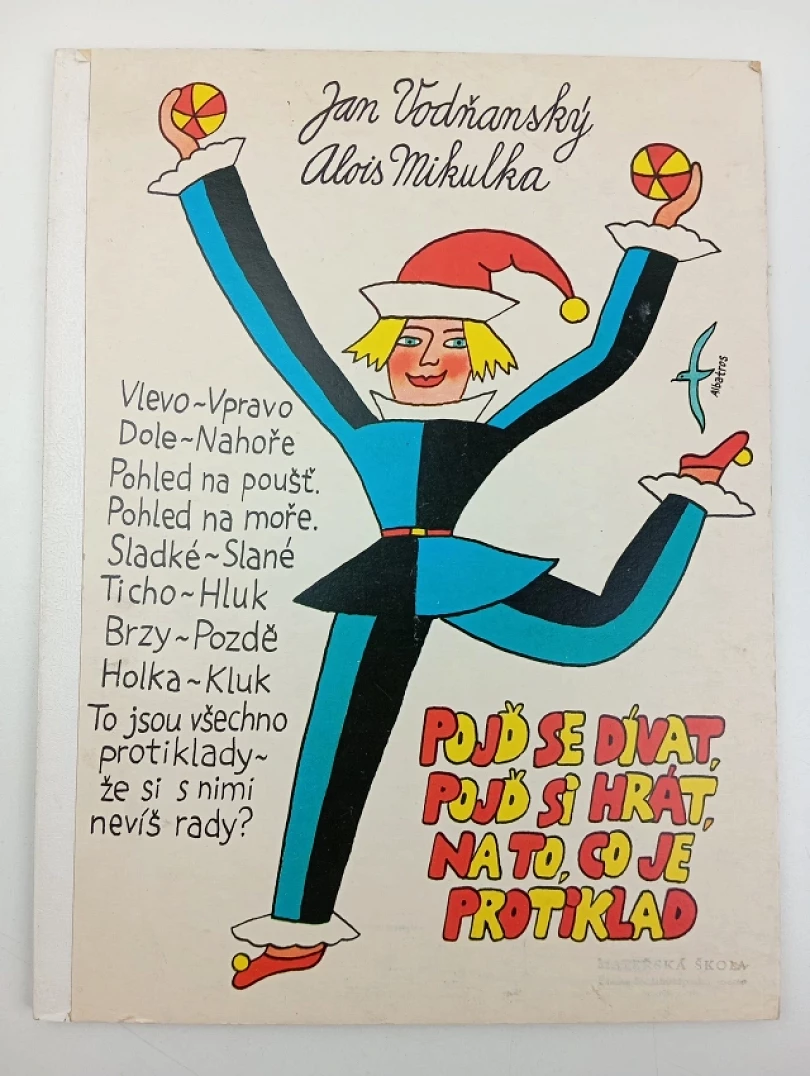 Jan Vodňanský
Alois Mikulka
Albatros
Vlevo~Vpravo
Dole~Nahoře
Pohled na poušť.
Pohled na moře.
Sladké~Slané
Ticho~Hluk
Brzy~Pozdě
Holka~Kluk
To jsou všechno
protiklady~
že si s nimi
nevíš rady?
POJĎ SE DÍVAT,
POJĎ SI HRÁT,
NA TO, CO JE
PROTIKLAD
MATEŘSKÁ ŠKOLA